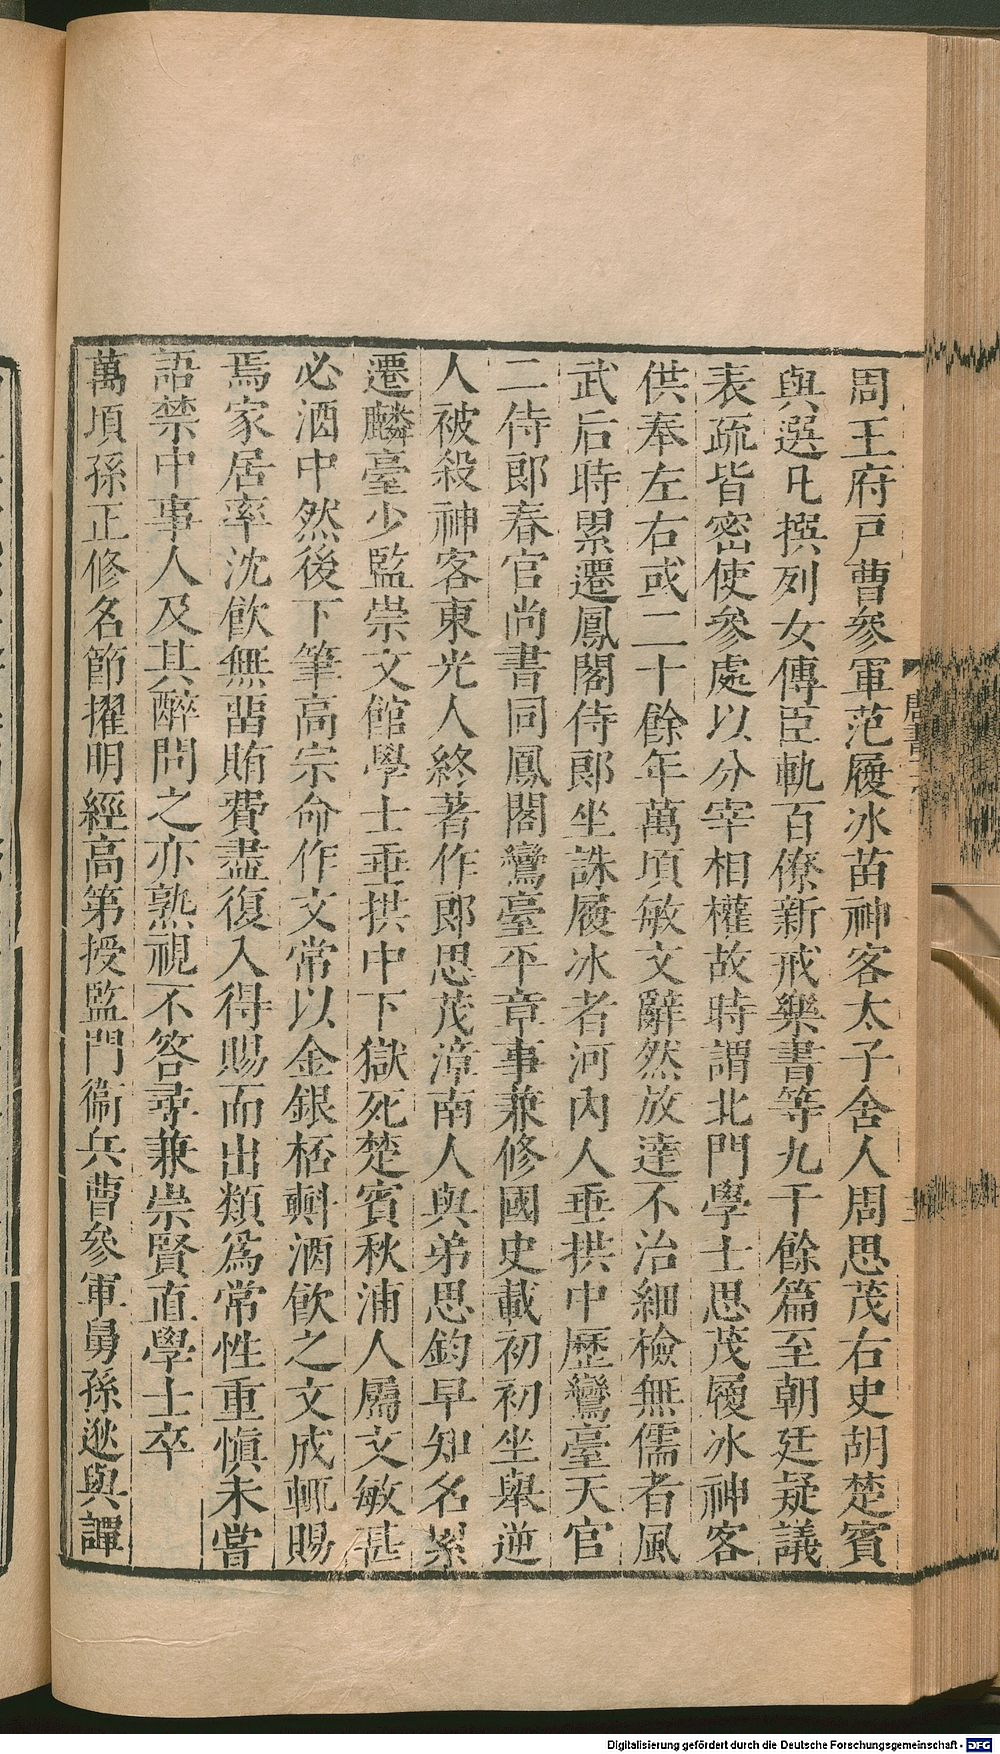 周王府戸曹參軍范履冰苗神客太子舍人周思茂右史胡楚賓
與選凡撰列女傳臣軌百僚新戒樂書等九千餘篇至朝廷疑議
表疏皆密使參處以分宰相權故時謂北門學士思茂履冰神客
供奉左右或二十餘年萬頃敏文辭然放達不治細檢無儒者風
武后時累遷鳳閣侍郎坐誅履冰者河內人垂拱中歷鸞臺天官
二侍郎春官尚書同鳳閣鸞臺平章事兼修國史載初初坐舉逆
人被殺神客東光人終著作郎思茂漳南人與弟思鈞早知名累
遷麟臺少監崇文館學士垂拱中下獄死楚賓秋浦人屬文敏甚
必酒中然後下筆高宗命作文常以金銀桮㪺酒飲之文成輒賜
焉家居率沈飲無畱賄費盡復入得賜而出類為常性重慎未嘗
語禁中事人及其醉問之亦熟視不答尋兼崇賢直學士卒
萬頃孫正修名節擢明經高第授監門衞兵曹參軍舅孫逖與譚
唐書
Digitalisierung gefördert durch die Deutsche Forschungsgemeinschaft - DFG